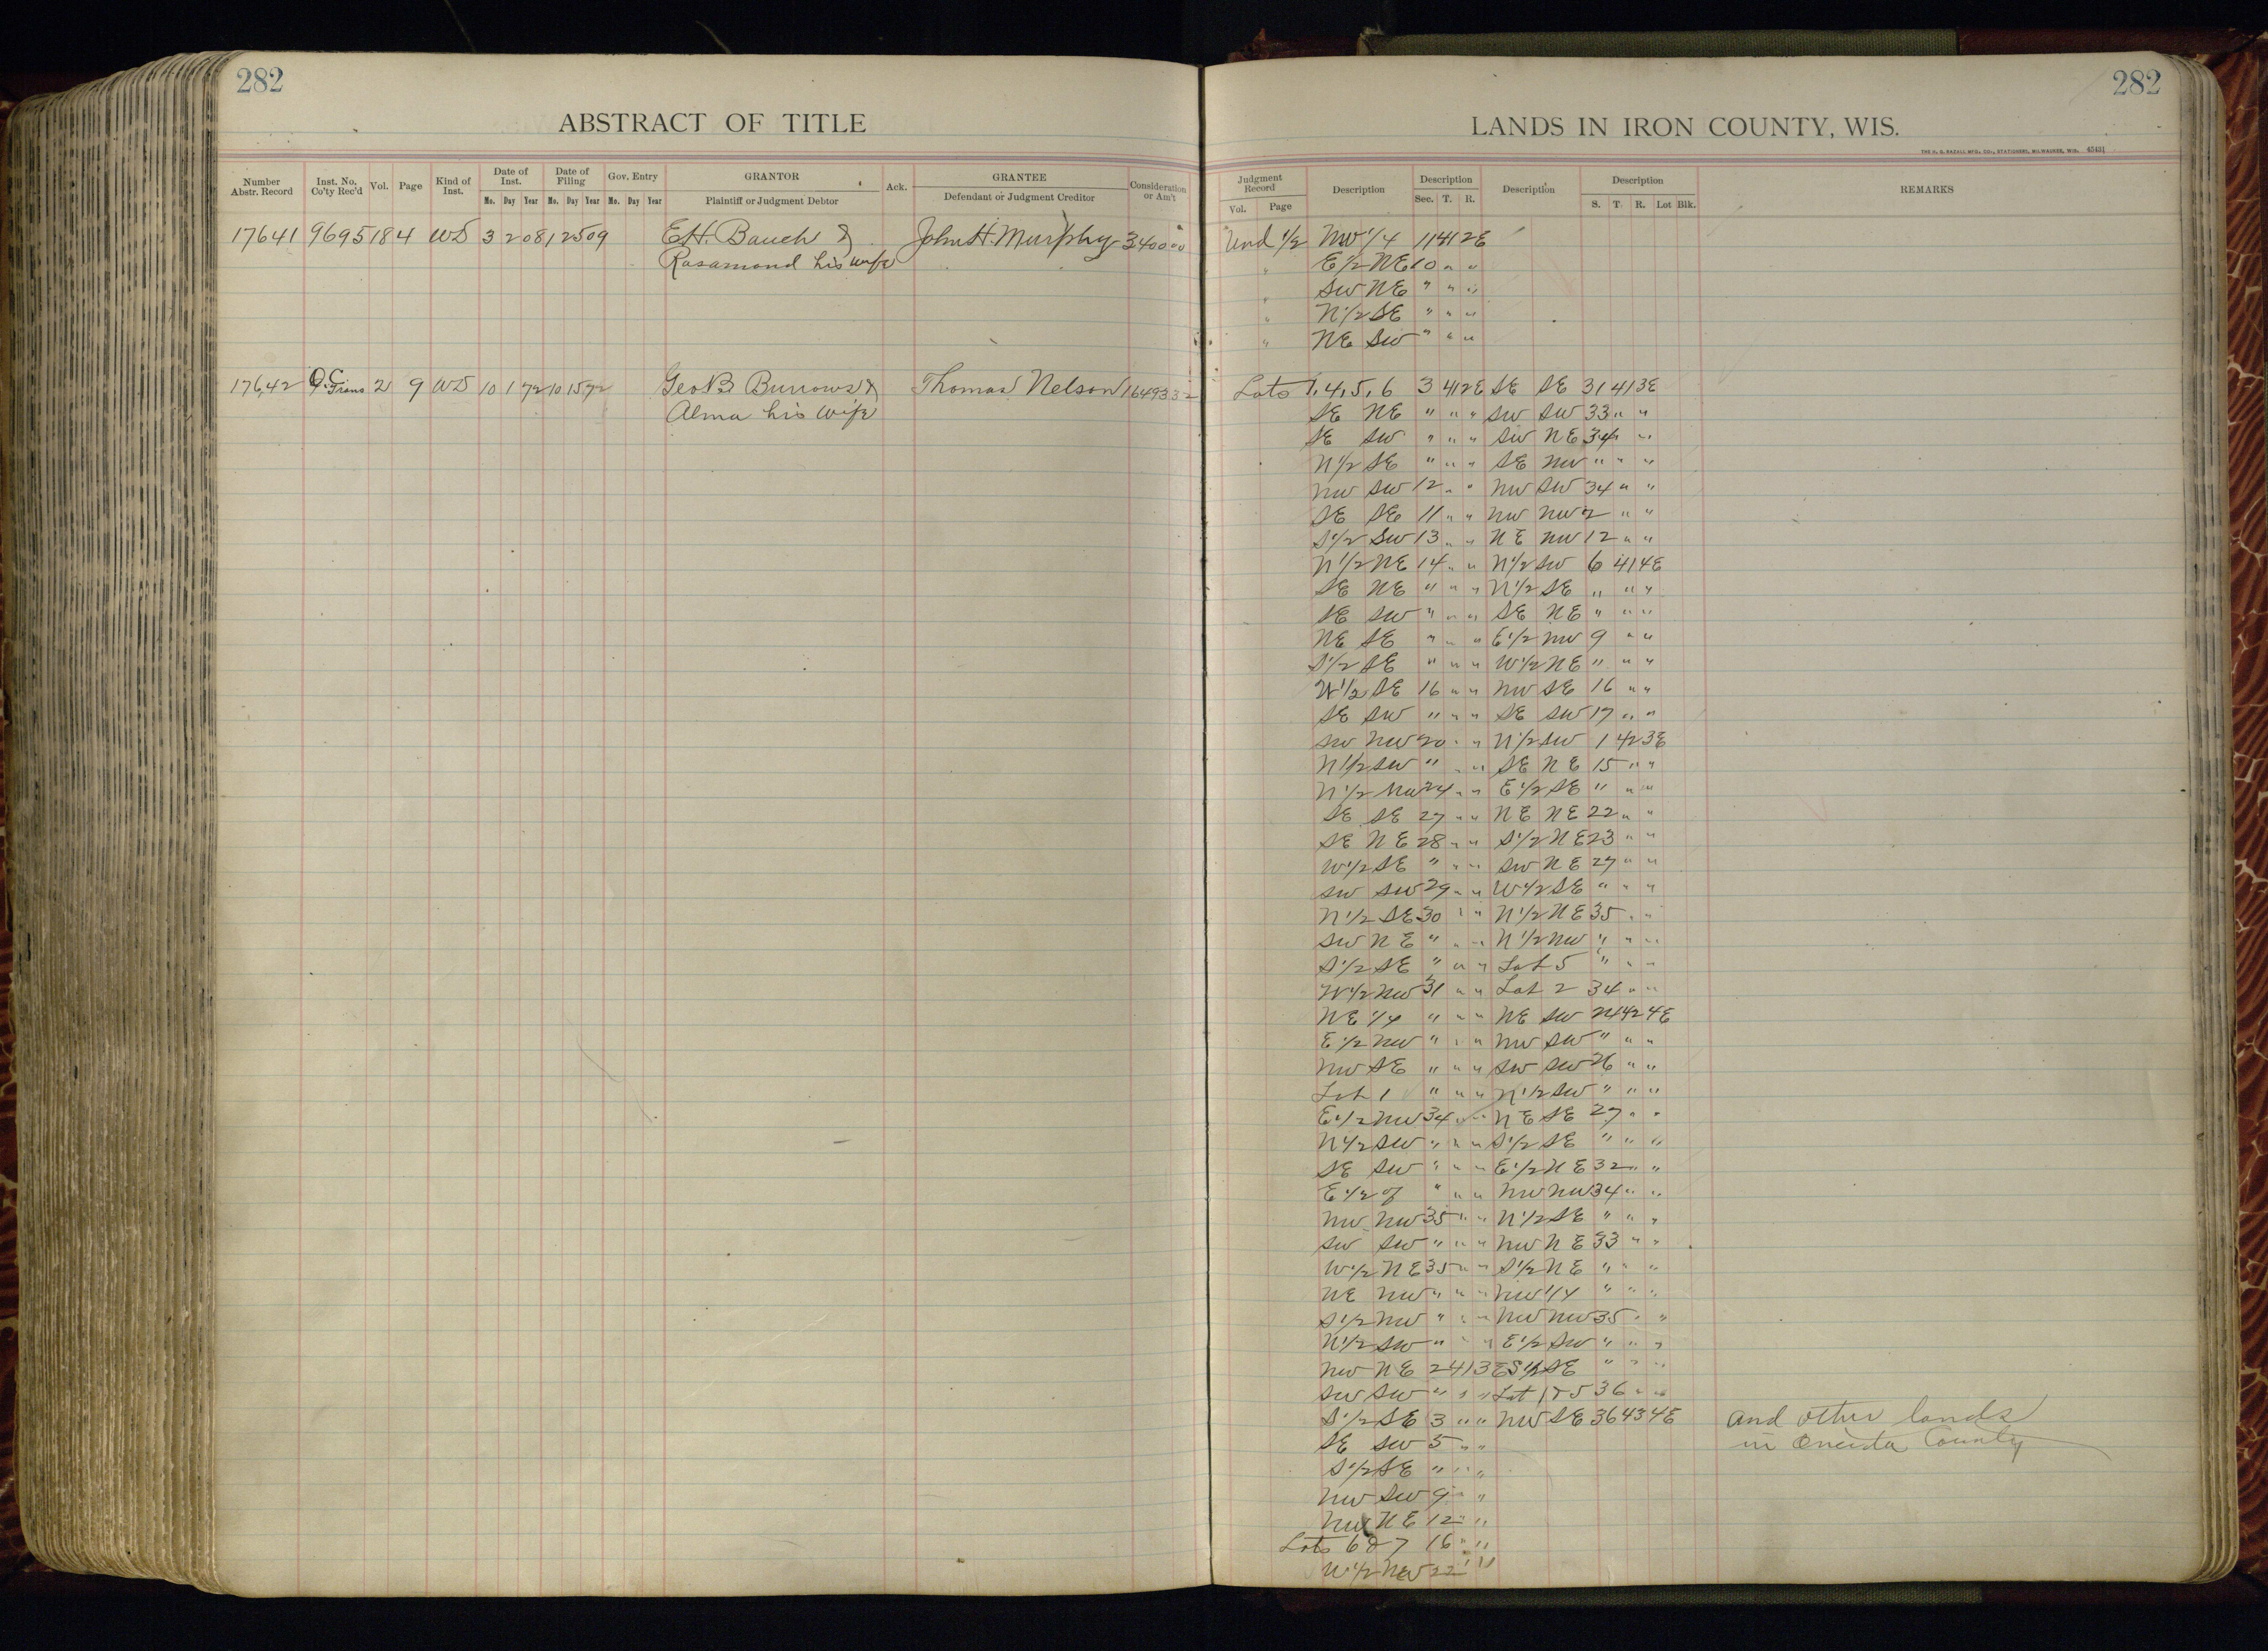 282
ABSTRACT OF TITLE
Number Abstr. Record Inst. No. Co'ty Rec'd Vol. Page Kind of Inst. Date of Inst. Mo. Day Year Date of Filing Mo. Day Year Gov. Entry Mo. Day Year GRANTOR Plaintiff or Judgment Debtor Ack. GRANTEE Defendant or Judgment Creditor Consideration or Am't
17641 9695 18 4 WD 3 2 08 1 25 09 E.H. Bauch & John H. Murphy 3400 00
Rosamond his wife
17642 O.C. Trans 2 9 WD 10 1 72 10 15 72 Geo B Burrows & Thomas Nelson 16493 32
Alma his wife
282
LANDS IN IRON COUNTY, WIS.
THE H. G. RAZALL MFG. CO., STATIONERS, MILWAUKEE, WIS. 45431
Judgment Record Vol. Page Description Description Sec. T. R. Description Description S. T. R. Lot Blk. REMARKS
Und 1/2 NW 1/4 11 41 2E
" E 1/2 NE 10 " "
" SW NE " " "
" N 1/2 SE " " "
" NE SW " " "
Lots 1, 4, 5, 6 3 41 2E SE SE 31 41 3E
SE NE " " " SW SW 33 " "
SE SW " " " SW NE 34 " "
N 1/2 SE " " " SE NW " " "
NW SW 12 " " NW SW 34 " "
SE SE 11 " " NW NW 2 " "
S 1/2 SW 13 " " NE NW 12 " "
N 1/2 NE 14 " " N 1/2 SW 6 41 4E
SE NE " " " N 1/2 SE " " "
SE SW " " " SE NE " " "
NE SE " " " E 1/2 NW 9 " "
S 1/2 SE " " " W 1/2 NE " " "
W 1/2 SE 16 " " NW SE 16 " "
SE SW " " " SE SW 17 " "
SW NW 20 " " N 1/2 SW 1 42 3E
N 1/2 SW " " " SE NE 15 " "
N 1/2 NW 24 " " E 1/2 SE " " "
SE SE 27 " " NE NE 22 " "
SE NE 28 " " S 1/2 NE 23 " "
W 1/2 SE " " " SW NE 27 " "
SW SW 29 " " W 1/2 SE " " "
N 1/2 SE 30 " " N 1/2 NE 35 " "
SW NE " " " N 1/2 NW " " "
S 1/2 SE " " " Lot 5 " " "
W 1/2 NW 31 " " Lot 2 34 " "
NE 1/4 " " " NE SW 24 42 4E
E 1/2 NW " " " NW SW " " "
NW SE " " " SW SW 26 " "
Lot 1 " " " N 1/2 SW " " "
E 1/2 NW 34 " " NE SE 27 " "
N 1/2 SW " " " S 1/2 SE " " "
SE SW " " " E 1/2 NE 32 " "
E 1/2 of " " " NW NW 34 " "
NW NW 35 " " N 1/2 SE " " "
SW SW " " " NW NE 33 " "
W 1/2 NE 35 " " S 1/2 NE " " "
NE NW " " " NW 1/4 " " "
S 1/2 NW " " " NW NW 35 " "
N 1/2 SW " " " E 1/2 SW " " "
NW NE 2 41 3E S 1/2 SE " " "
SW SW " " " Lot 1 & 5 36 " "
S 1/2 SE 3 " " NW SE 36 43 4E and other lands
SE SW 5 " " in Oneida County
S 1/2 SE " " "
NW SW 9 " "
NW NE 12 " "
Lots 6 & 7 16 " "
W 1/2 NW 22 " "